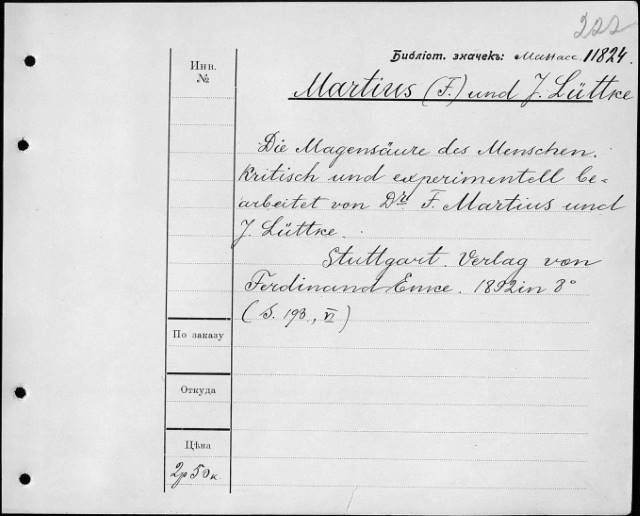 222
Библіот. значекъ: Манасс 11824.
Инв.
№
Martius (F.) und J. Lüttke
Die Magensäure des Menschen.
Kritisch und experimentell be-
arbeitet von Dr F. Martius und
J. Lüttke.
Stuttgart. Verlag von
Ferdinand Enke. 1892 in 8°
(S. 193., VI)
По заказу
Откуда
Цѣна
2р 50к